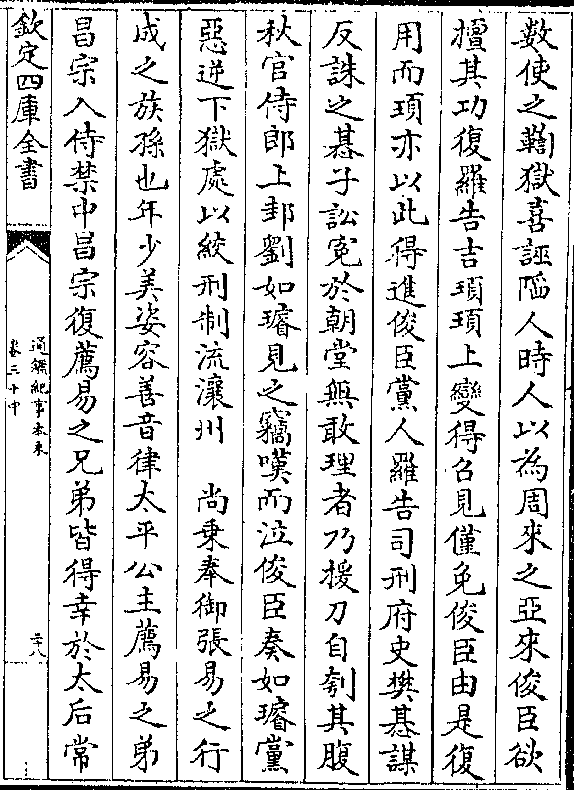 數使之鞫獄喜誣陷人時人以為周來之亞來俊臣欲
擅其功復羅告吉頊頊上變得召見僅免俊臣由是復
用而頊亦以此得進俊臣黨人羅告司刑府史樊惎謀
反誅之惎子訟寃於朝堂無敢理者乃援刀自刳其腹
秋官侍郎上邽劉如璿見之竊嘆而泣俊臣奏如璿黨
惡逆下獄處以絞刑制流瀼州　尚乗奉御張易之行
成之族孫也年少美姿容善音律太平公主薦易之弟
昌宗入侍禁中昌宗復薦易之兄弟皆得幸於太后常
欽定四庫全書
通鑑紀事本末
卷三十中
二十八